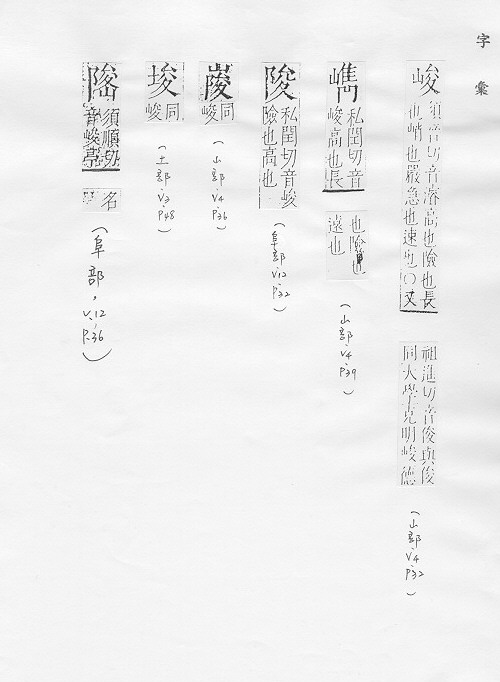 字彙
峻
須晉切音濬高也險也長
也峭也嚴急也速也〇又
祖進切音俊與俊
同大學克明峻德
(山部,V.4,P.32)
嶲
私閏切音
峻高也長
也險也
遠也
(山部,V.4,P.39)
陖
私閏切音峻
險也高也
(阜部,V.12,P.32)
同
峻
(山部,V.4,P.36)
埈
同
峻
(土部,V.3,P.48)
須順切
音峻亭
名
(阜部,V.12,P.36)